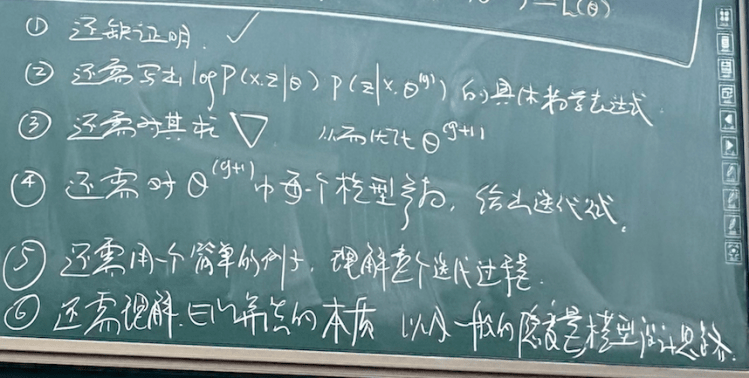 — L(θ)
① 还缺证明. ✓
② 还需写出 log P(x.z|θ) P(z|x.θ^(g)) 的具体数学表达式
③ 还需对其求 ▽ 从而优化 θ^(g+1)
④ 还需对 θ^(g+1) 中每个模型参数, 给出迭代式。
⑤ 还需用一个简单的例子, 理解整个迭代过程.
⑥ 还需理解 EM算法的本质 以及一般的隐变量模型设计思路.